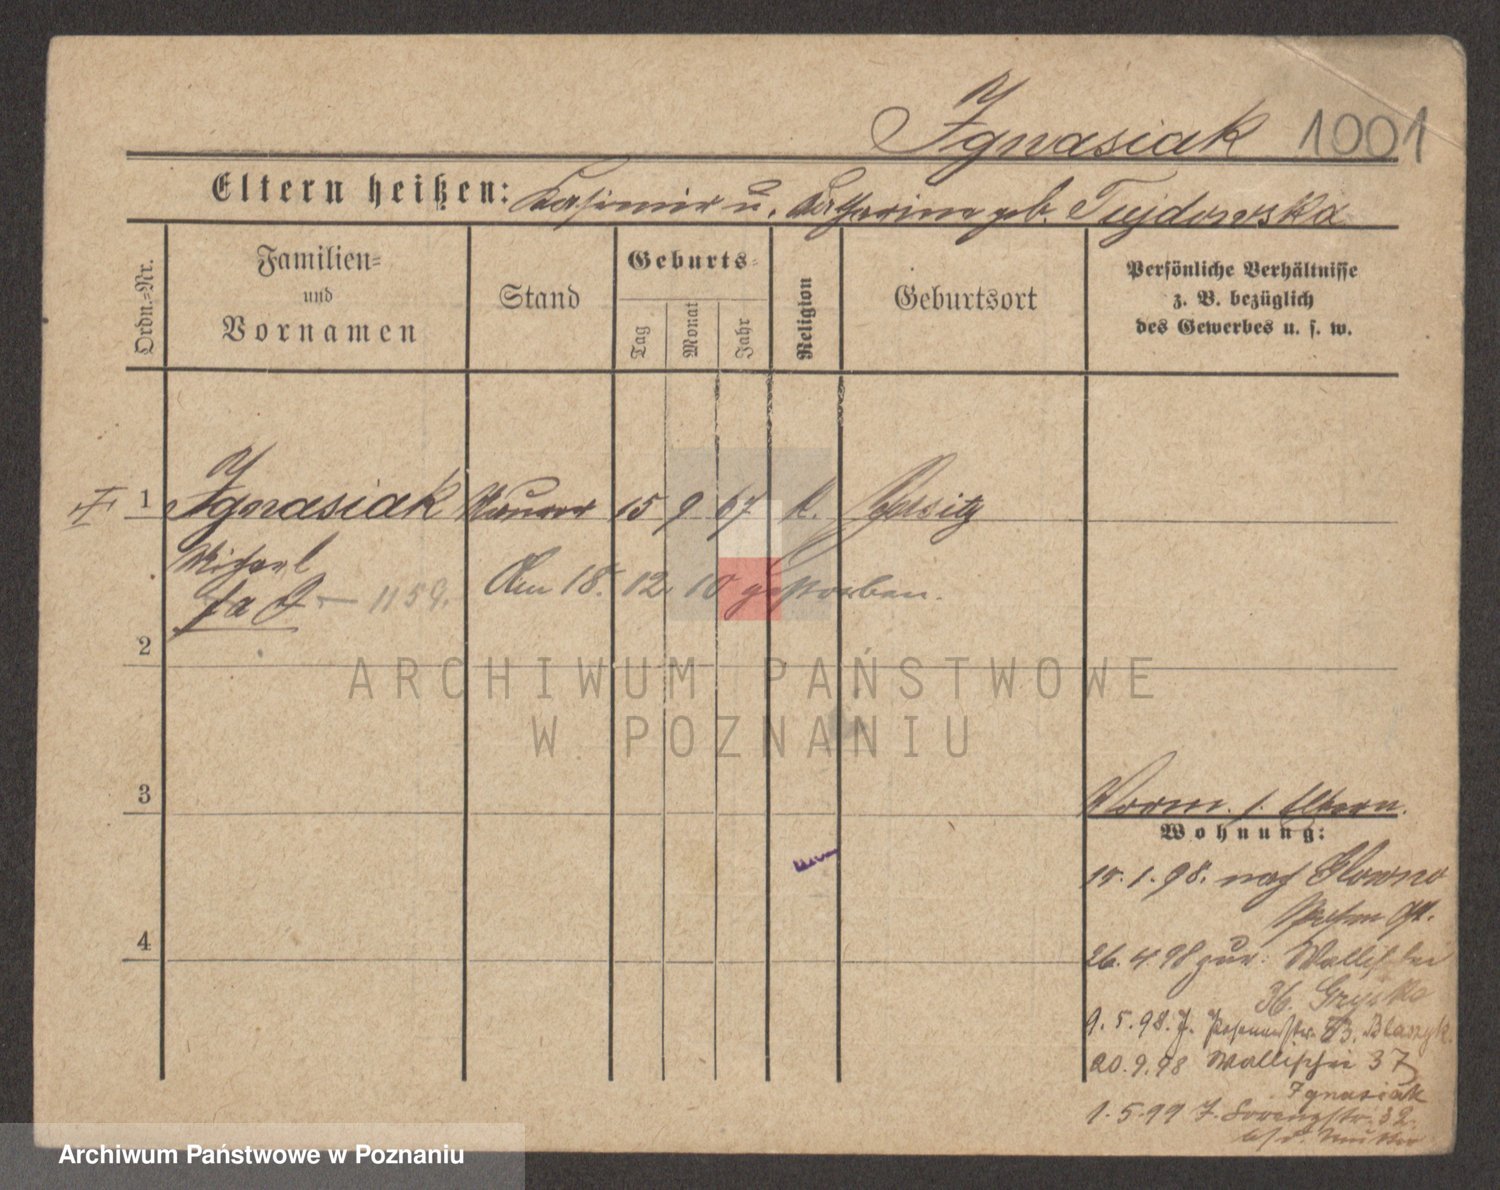 Ignasiak 1001
Eltern heißen: Kasimir u. Katharina geb. Tujdowska
Ordn.-Nr.
Familien-
und
Vornamen
Stand
Geburts-
Tag
Monat
Jahr
Religion
Geburtsort
Persönliche Verhältnisse
z. B. bezüglich
des Gewerbes u. s. w.
1 Ignasiak Maurer 15 9 67 k. Zersitz
Michael
1159.
Am 18. 12. 10 gestorben.
2
ARCHIWUM PAŃSTWOWE
W POZNANIU
3
Vorm. s. Eltern.
Wohnung:
15. 1. 98. nach Glowno
Posen Ost.
4
26. 4. 98 zur. Wallischei
36. Gryska
9. 5. 98. J. B. Blaszyk.
20. 9. 98 Wallischei 37
Ignasiak
1. 5. 99 J. 32.
b/d. Mutter
Archiwum Państwowe w Poznaniu